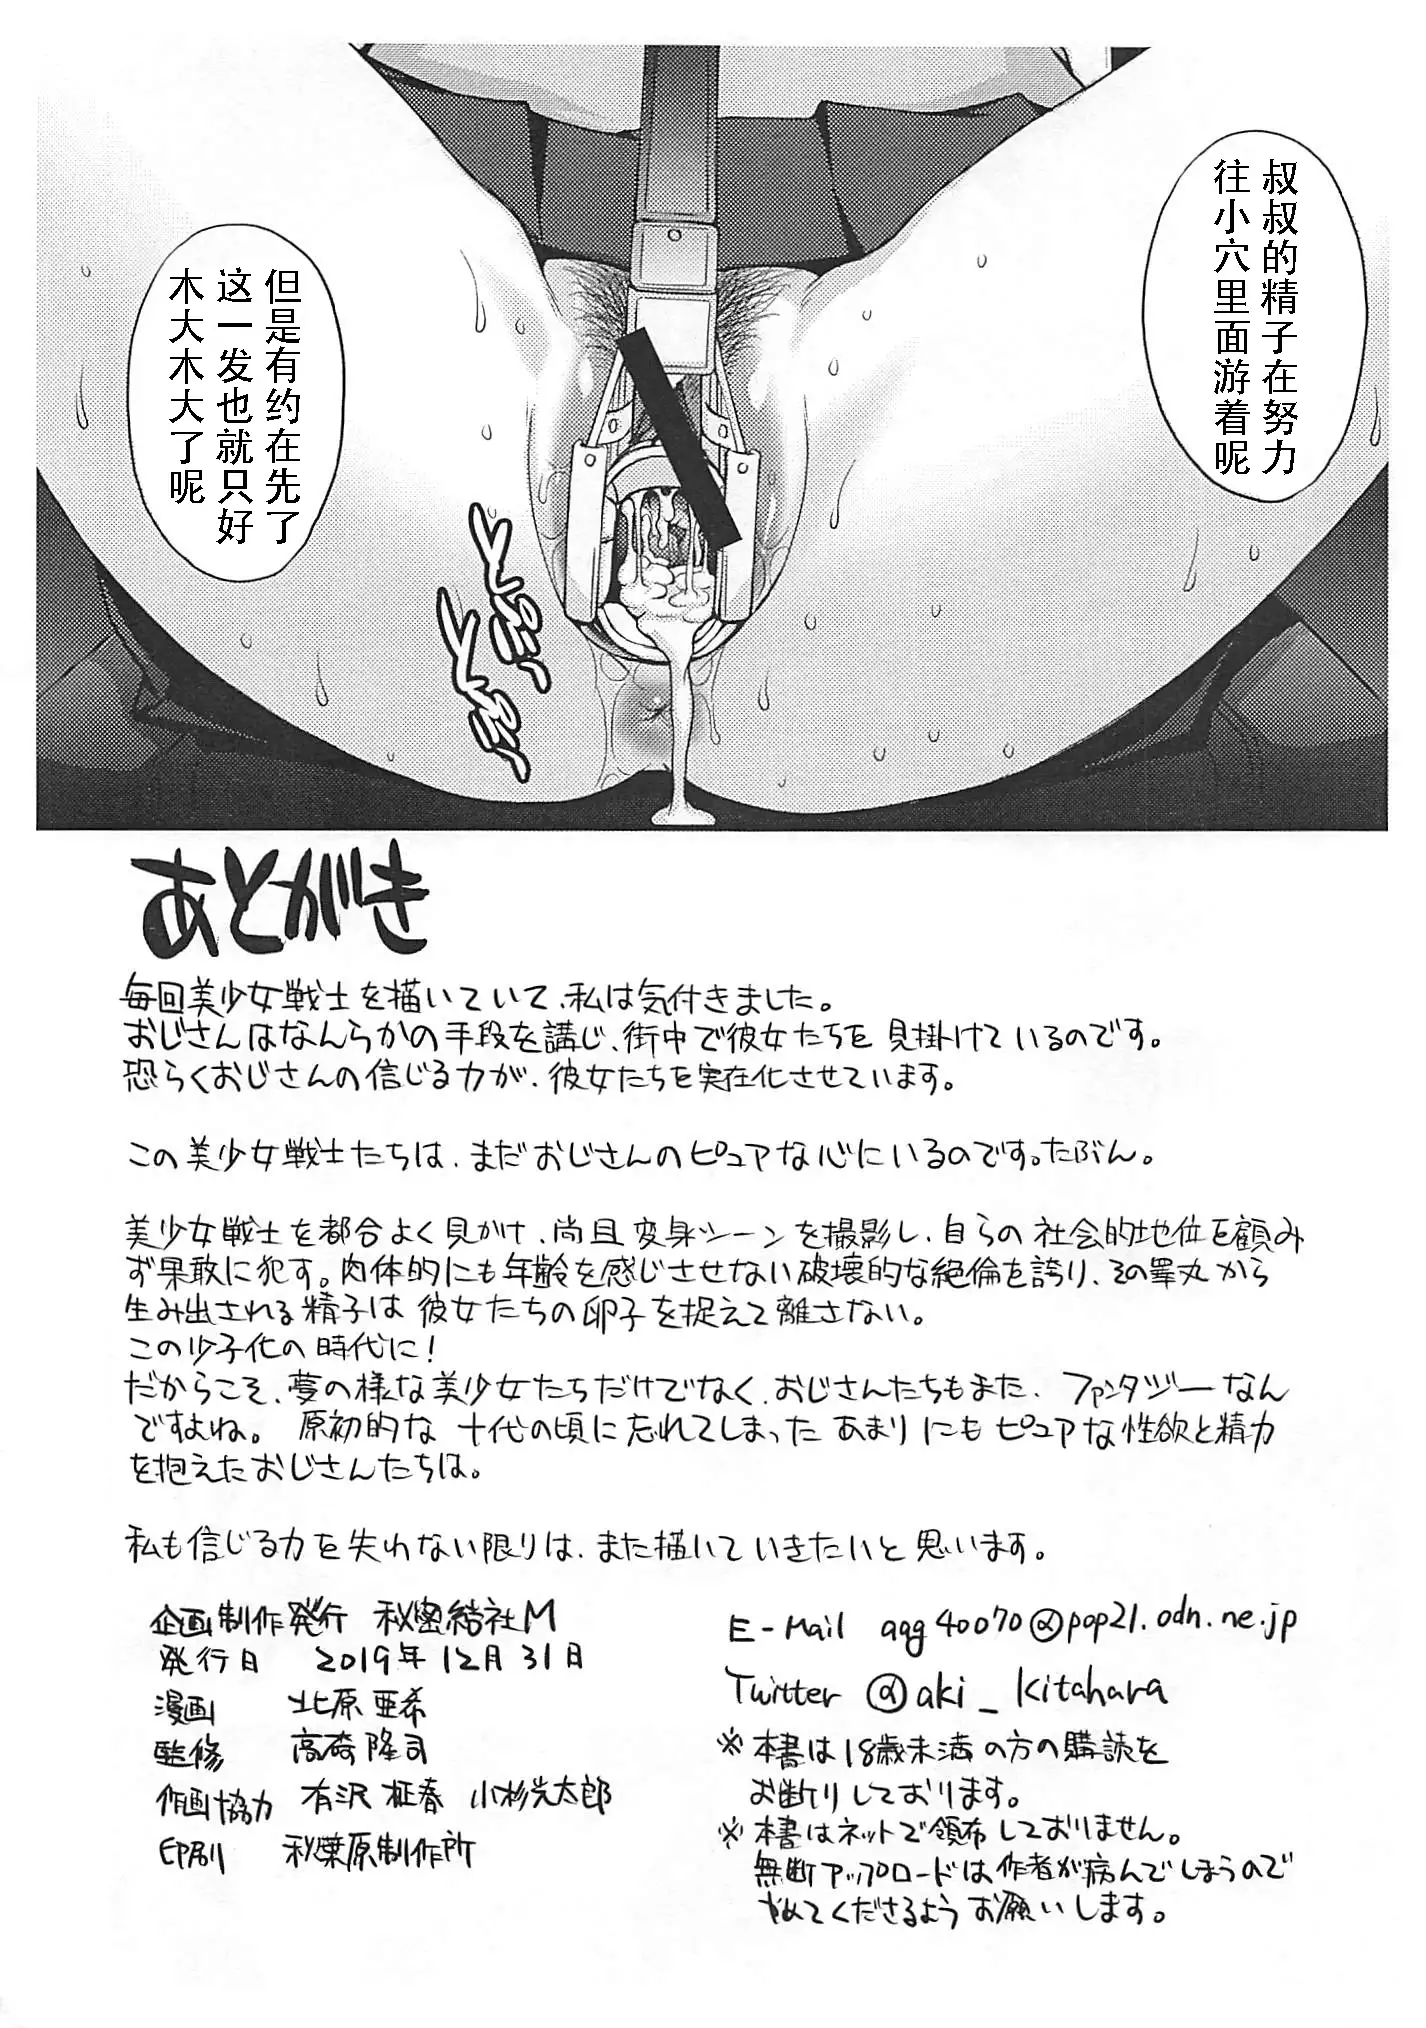 叔叔的精子在努力
往小穴里面游着呢
但是有约在先了
这一发也就只好
木大木大了呢
あとがき
毎回美少女戦士を描いていて、私は気付きました。
おじさんはなんらかの手段を講じ、街中で彼女たちを見掛けているのです。
恐らくおじさんの信じる力が、彼女たちを実在化させています。
この美少女戦士たちは、まだおじさんのピュアな心にいるのです。たぶん。
美少女戦士を都合よく見かけ、尚且変身シーンを撮影し、自らの社会的地位を顧み
ず果敢に犯す。肉体的にも年齢を感じさせない破壊的な絶倫を誇り、その睾丸から
生み出される精子は彼女たちの卵子を捉えて離さない。
この少子化の時代に！
だからこそ、夢の様な美少女たちだけでなく、おじさんたちもまた、ファンタジーなん
ですよね。原初的な十代の頃に忘れてしまったあまりにもピュアな性欲と精力
を抱えたおじさんたちは。
私も信じる力を失わない限りは、また描いていきたいと思います。
企画制作発行 秘密結社M
発行日 2019年12月31日
漫画 北原亜希
監修 高崎隆司
作画協力 有沢柾春 小杉光太郎
印刷 秋葉原制作所
E-Mail agg40070@pop21.odn.ne.jp
Twitter @aki_kitahara
※本書は18歳未満の方の購読を
お断りしております。
※本書はネットで頒布しておりません。
無断アップロードは作者が病んでしまうので
やめてくださるようお願いします。